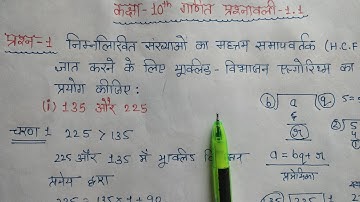 कक्षा - 10th गणित प्रश्नावली - 1.1
प्रश्न-1 निम्नलिखित संख्याओं का महत्तम समापवर्तक (H.C.F
ज्ञात करने के लिए यूक्लिड - विभाजन एल्गोरिथ्म का
प्रयोग कीजिए :
(i) 135 और 225
चरण 1 225 > 135
225 और 135 में यूक्लिड
प्रमेय द्वारा
225 = 135 x 1 + 90
b) a (q
r
a = bq + r